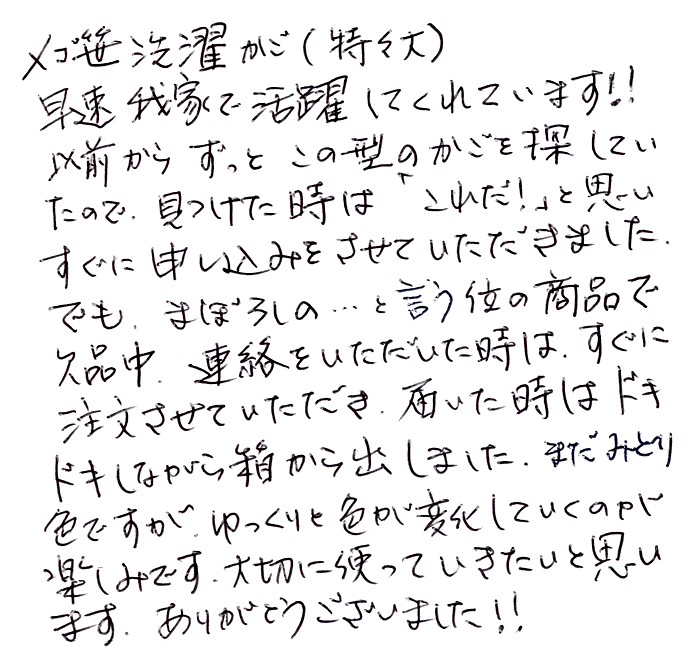 メゴ笹洗濯かご(特々大)
早速我家で活躍してくれています!!
以前からずっとこの型のかごを探してい
たので、見つけた時は「これだ!」と思い
すぐに申し込みをさせていただきました。
でも、まぼろしの…と言う位の商品で
欠品中。連絡をいただいた時は、すぐに
注文させていただき、届いた時はドキ
ドキしながら箱から出しました。まだみどり
色ですが、ゆっくりと色が変化していくのが
楽しみです。大切に使っていきたいと思い
ます。ありがとうございました!!